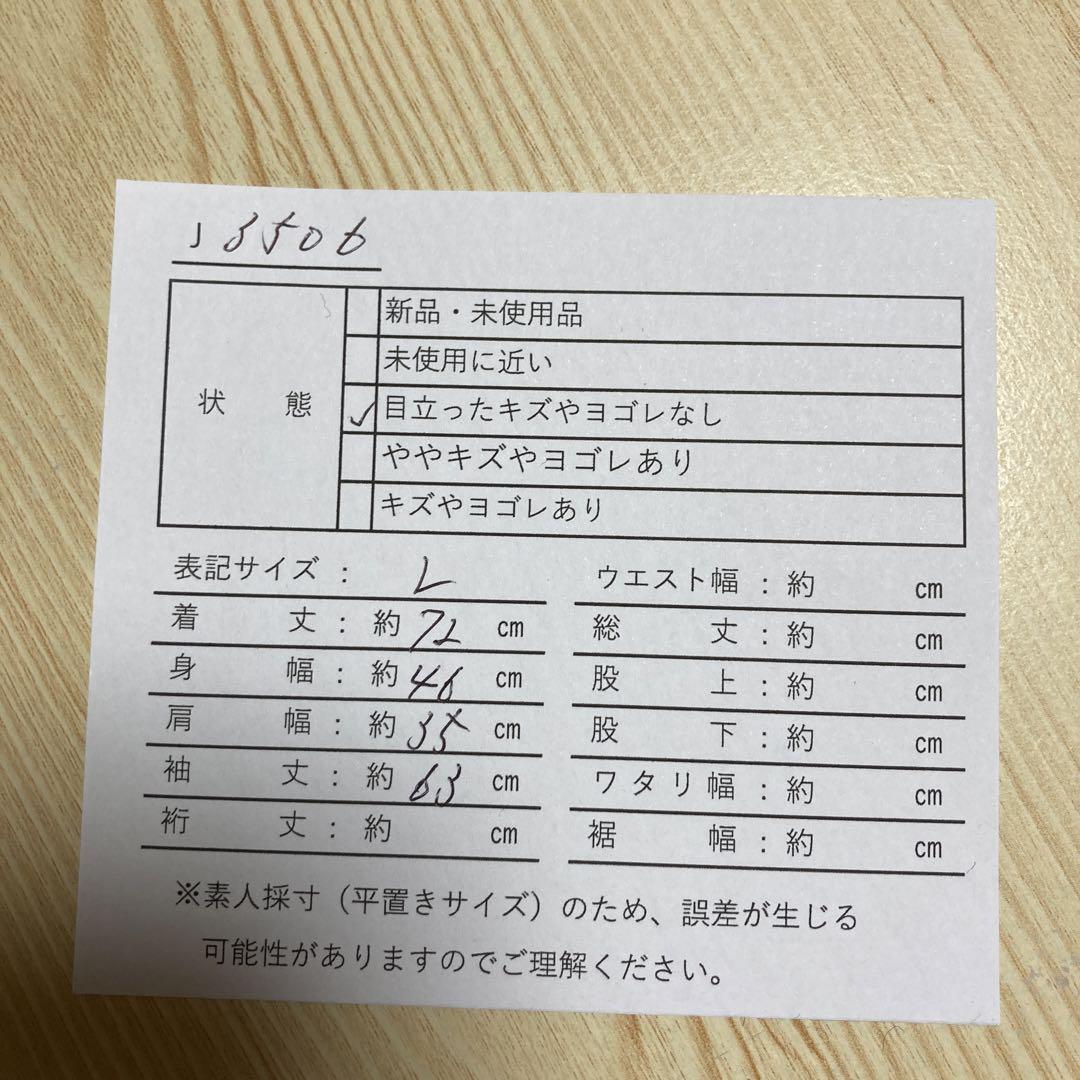 J3506
状態
新品・未使用品
未使用に近い
✓ 目立ったキズやヨゴレなし
ややキズやヨゴレあり
キズやヨゴレあり
表記サイズ： L
着丈：約72cm
身幅：約46cm
肩幅：約35cm
袖丈：約63cm
裄丈：約 cm
ウエスト幅：約 cm
総丈：約 cm
股上：約 cm
股下：約 cm
ワタリ幅：約 cm
裾幅：約 cm
※素人採寸（平置きサイズ）のため、誤差が生じる
可能性がありますのでご理解ください。